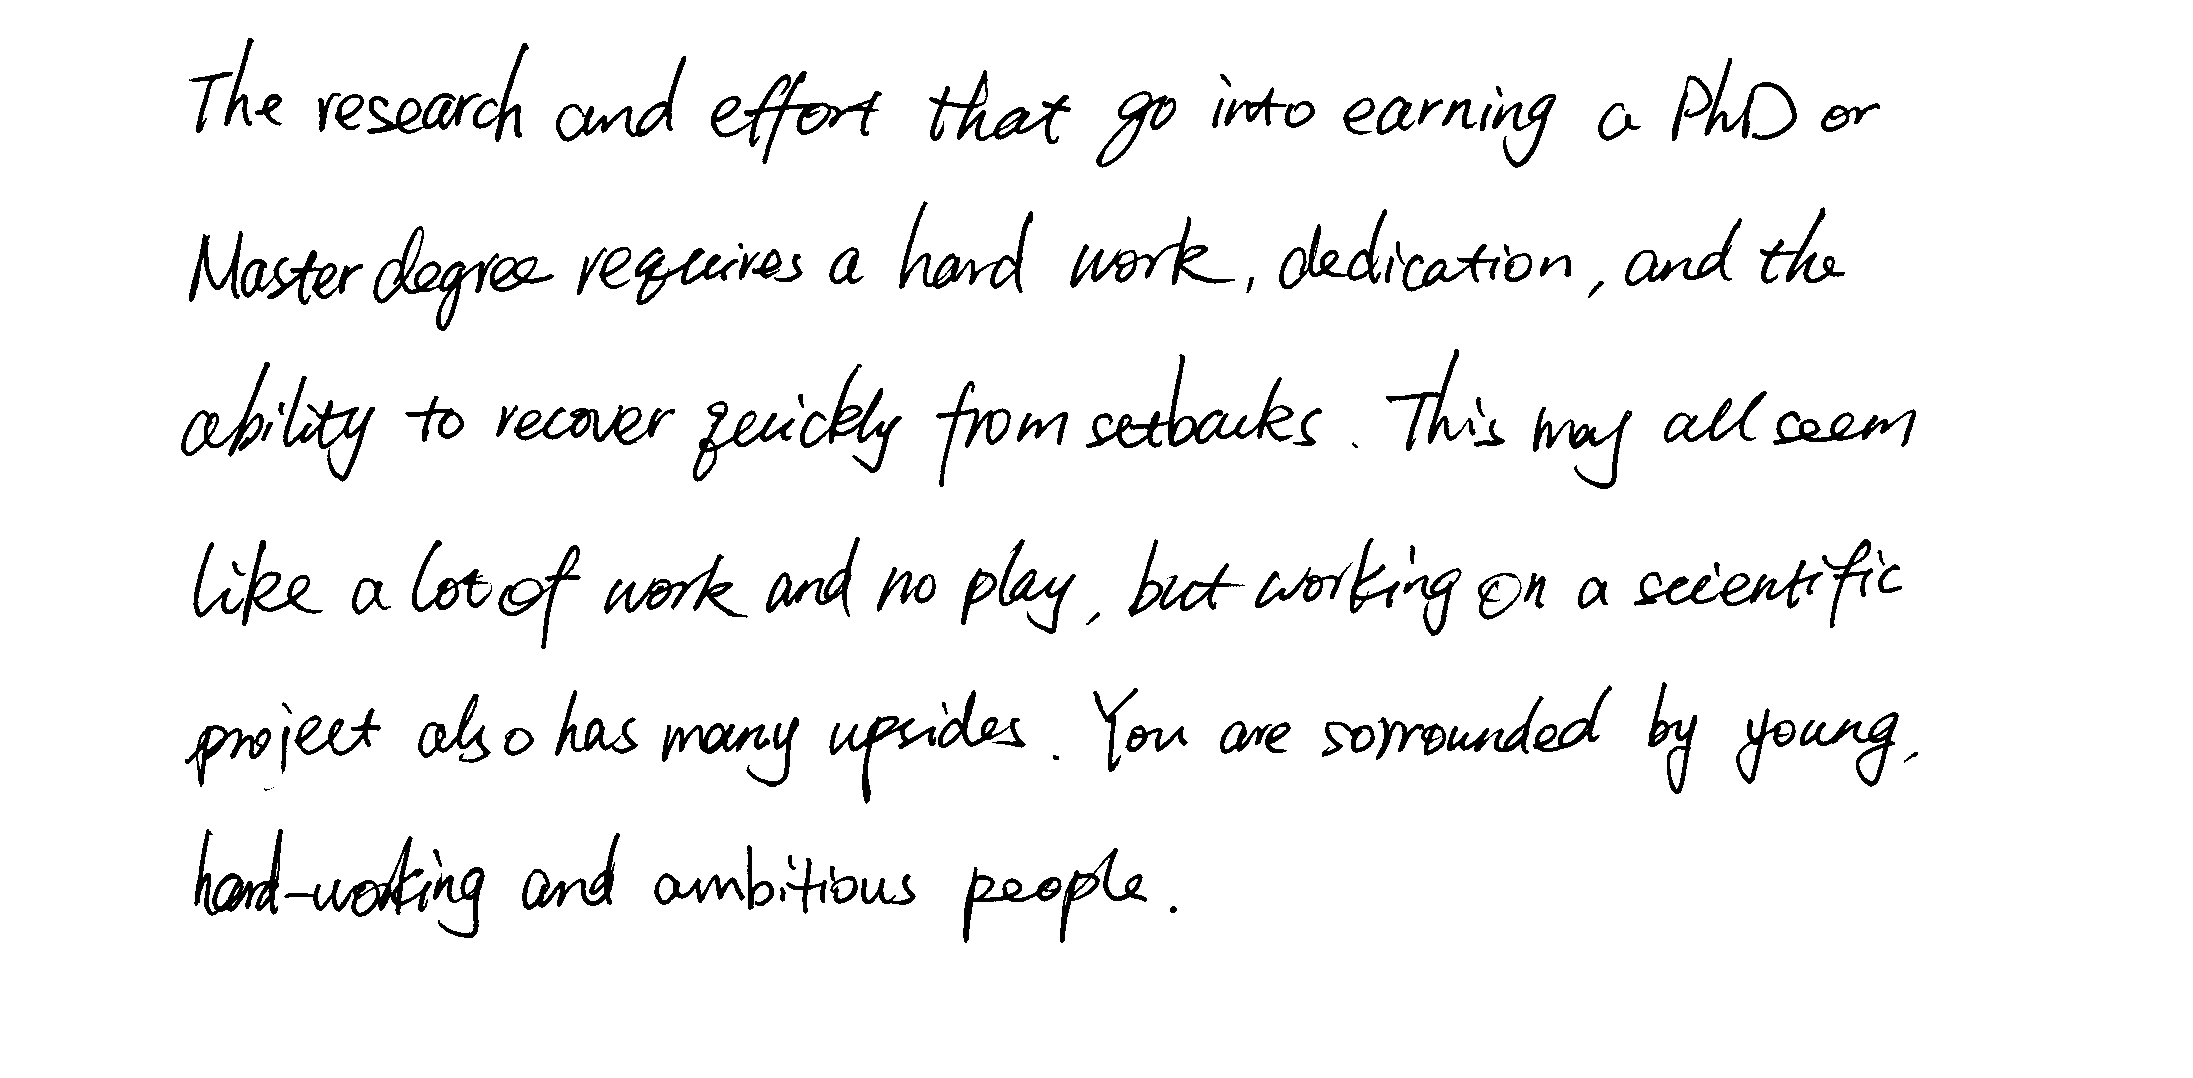 The research and effort that go into earning a PhD or
Master degree requires a hard work, dedication, and the
ability to recover quickly from setbacks. This may all seem
like a lot of work and no play, but working on a scientific
project also has many upsides. You are sorrounded by young,
hard-working and ambitious people.